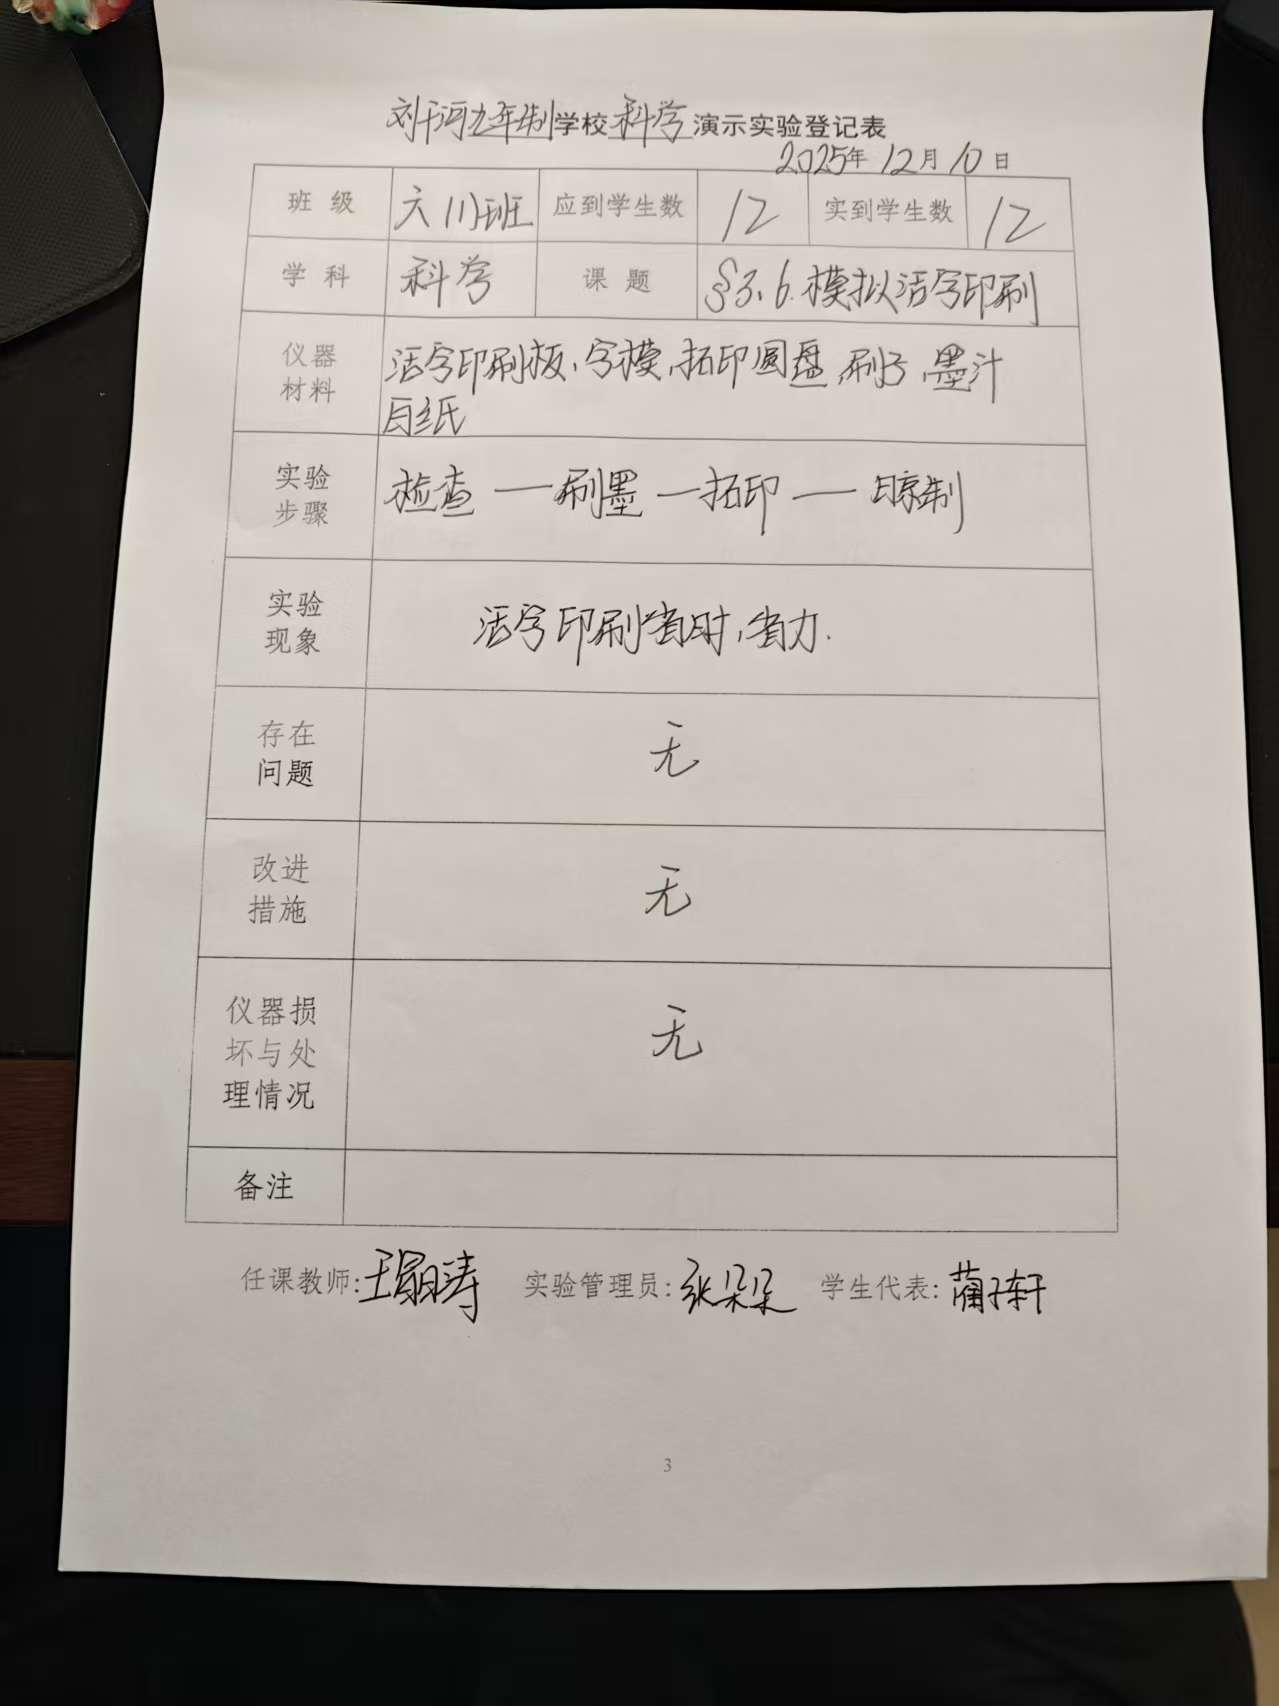 刘干河九年制学校科学演示实验登记表
2025年12月10日
班 级 六(1)班 应到学生数 12 实到学生数 12
学 科 科学 课 题 §3.6.模拟活字印刷
仪器
材料
活字印刷板、字模、拓印圆盘、刷子、墨汁
白纸
实验
步骤
检查 — 刷墨 — 拓印 — 晾制
实验
现象
活字印刷省时,省力.
存在
问题
无
改进
措施
无
仪器损
坏与处
理情况
无
备注
任课教师: 实验管理员:张朵朵 学生代表:蔺子轩
3